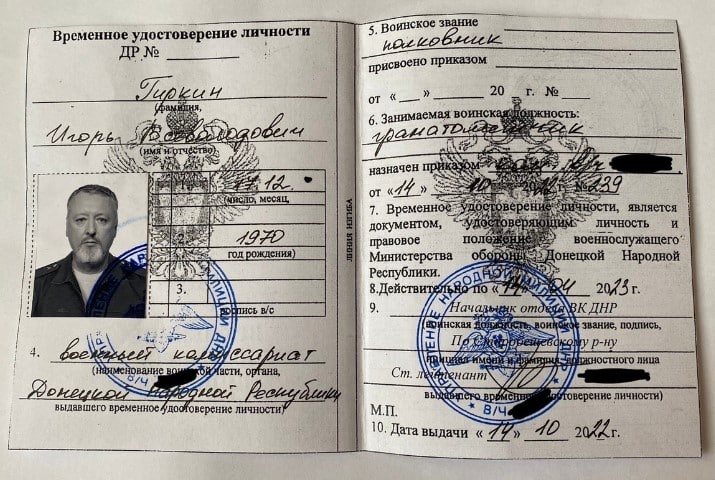 Временное удостоверение личности
ДР № ________
Гиркин
(фамилия,
Игорь Всеволодович
(имя и отчество)
1. 17.12.
(число, месяц,
2. 1970
год рождения)
3.
роспись в/с
4. военный комиссариат
(наименование воинской части, органа,
Донецкой Народной Республики
выдавшего временное удостоверение личности)
ЛИНИЯ ИЗГИБА
5. Воинское звание
полковник
присвоено приказом
от «__» ________ 20 г. №
6. Занимаемая воинская должность:
гранатометчик
назначен приказом в/ч
от «14» 10 2022г. №239
7. Временное удостоверение личности, является
документом, удостоверяющим личность и
правовое положение военнослужащего
Министерства обороны Донецкой Народной
Республики.
8.Действительно по «14» 04 2023 г.
9. Начальник отдела ВК ДНР
воинская должность, воинское звание, подпись,
По Старобешевскому р-ну
инициал имени и фамилия должностного лица
Ст. лейтенант
выдавшего временное удостоверение личности)
М.П.
10. Дата выдачи «14» 10 2022г.
УПРАВЛЕНИЕ НАРОДНОЙ МИЛИЦИИ ДНР
* В/Ч
В/Ч